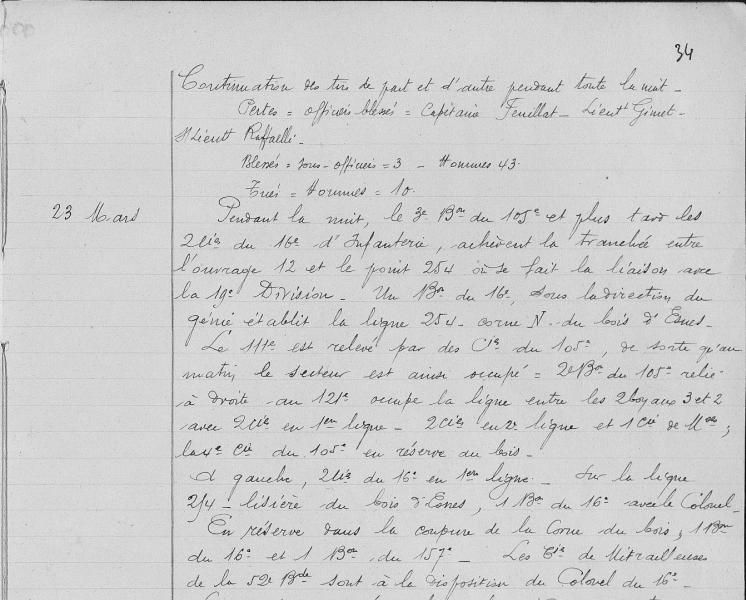 34
Continuation des tirs de part et d'autre pendant toute la nuit -
Pertes = officiers blessés = Capitaine Feuillat - Lieutt Gimet -
S/Lieutt Raffaelli -
Blessés = sous-officiers = 3 - Hommes 43.
Tués = Hommes = 10.
23 Mars
Pendant la nuit, le 3e Bon du 105e et plus tard les
2 Cies du 16e d'Infanterie, achèvent la tranchée entre
l'ouvrage 12 et le point 254 où se fait la liaison avec
la 19e Division - Un Bon du 16e, sous la direction du
génie établit la ligne 254 - corne N. du bois d'Esnes -
Le 111e est relevé par des Cies du 105e, de sorte qu'au
matin le secteur est ainsi occupé = 2e Bon du 105e relié
à droite au 121e occupe la ligne entre les 2 boyaux 3 et 2
avec 2 Cies en 1ère ligne - 2 Cies en 2e ligne et 1 Cie de Mses ;
la 4e Cie du 105e en réserve du bois -
A gauche, 2 Cies du 16e en 1ère ligne - Sur la ligne
254 - lisière du bois d'Esnes, 1 Bon du 16e avec le Colonel -
En réserve dans la coupure de la Corne du bois, 1 Bon
du 16e et 1 Bon du 157e - Les Cies de Mitrailleuses
de la 52e Bde sont à la disposition du Colonel du 16e -